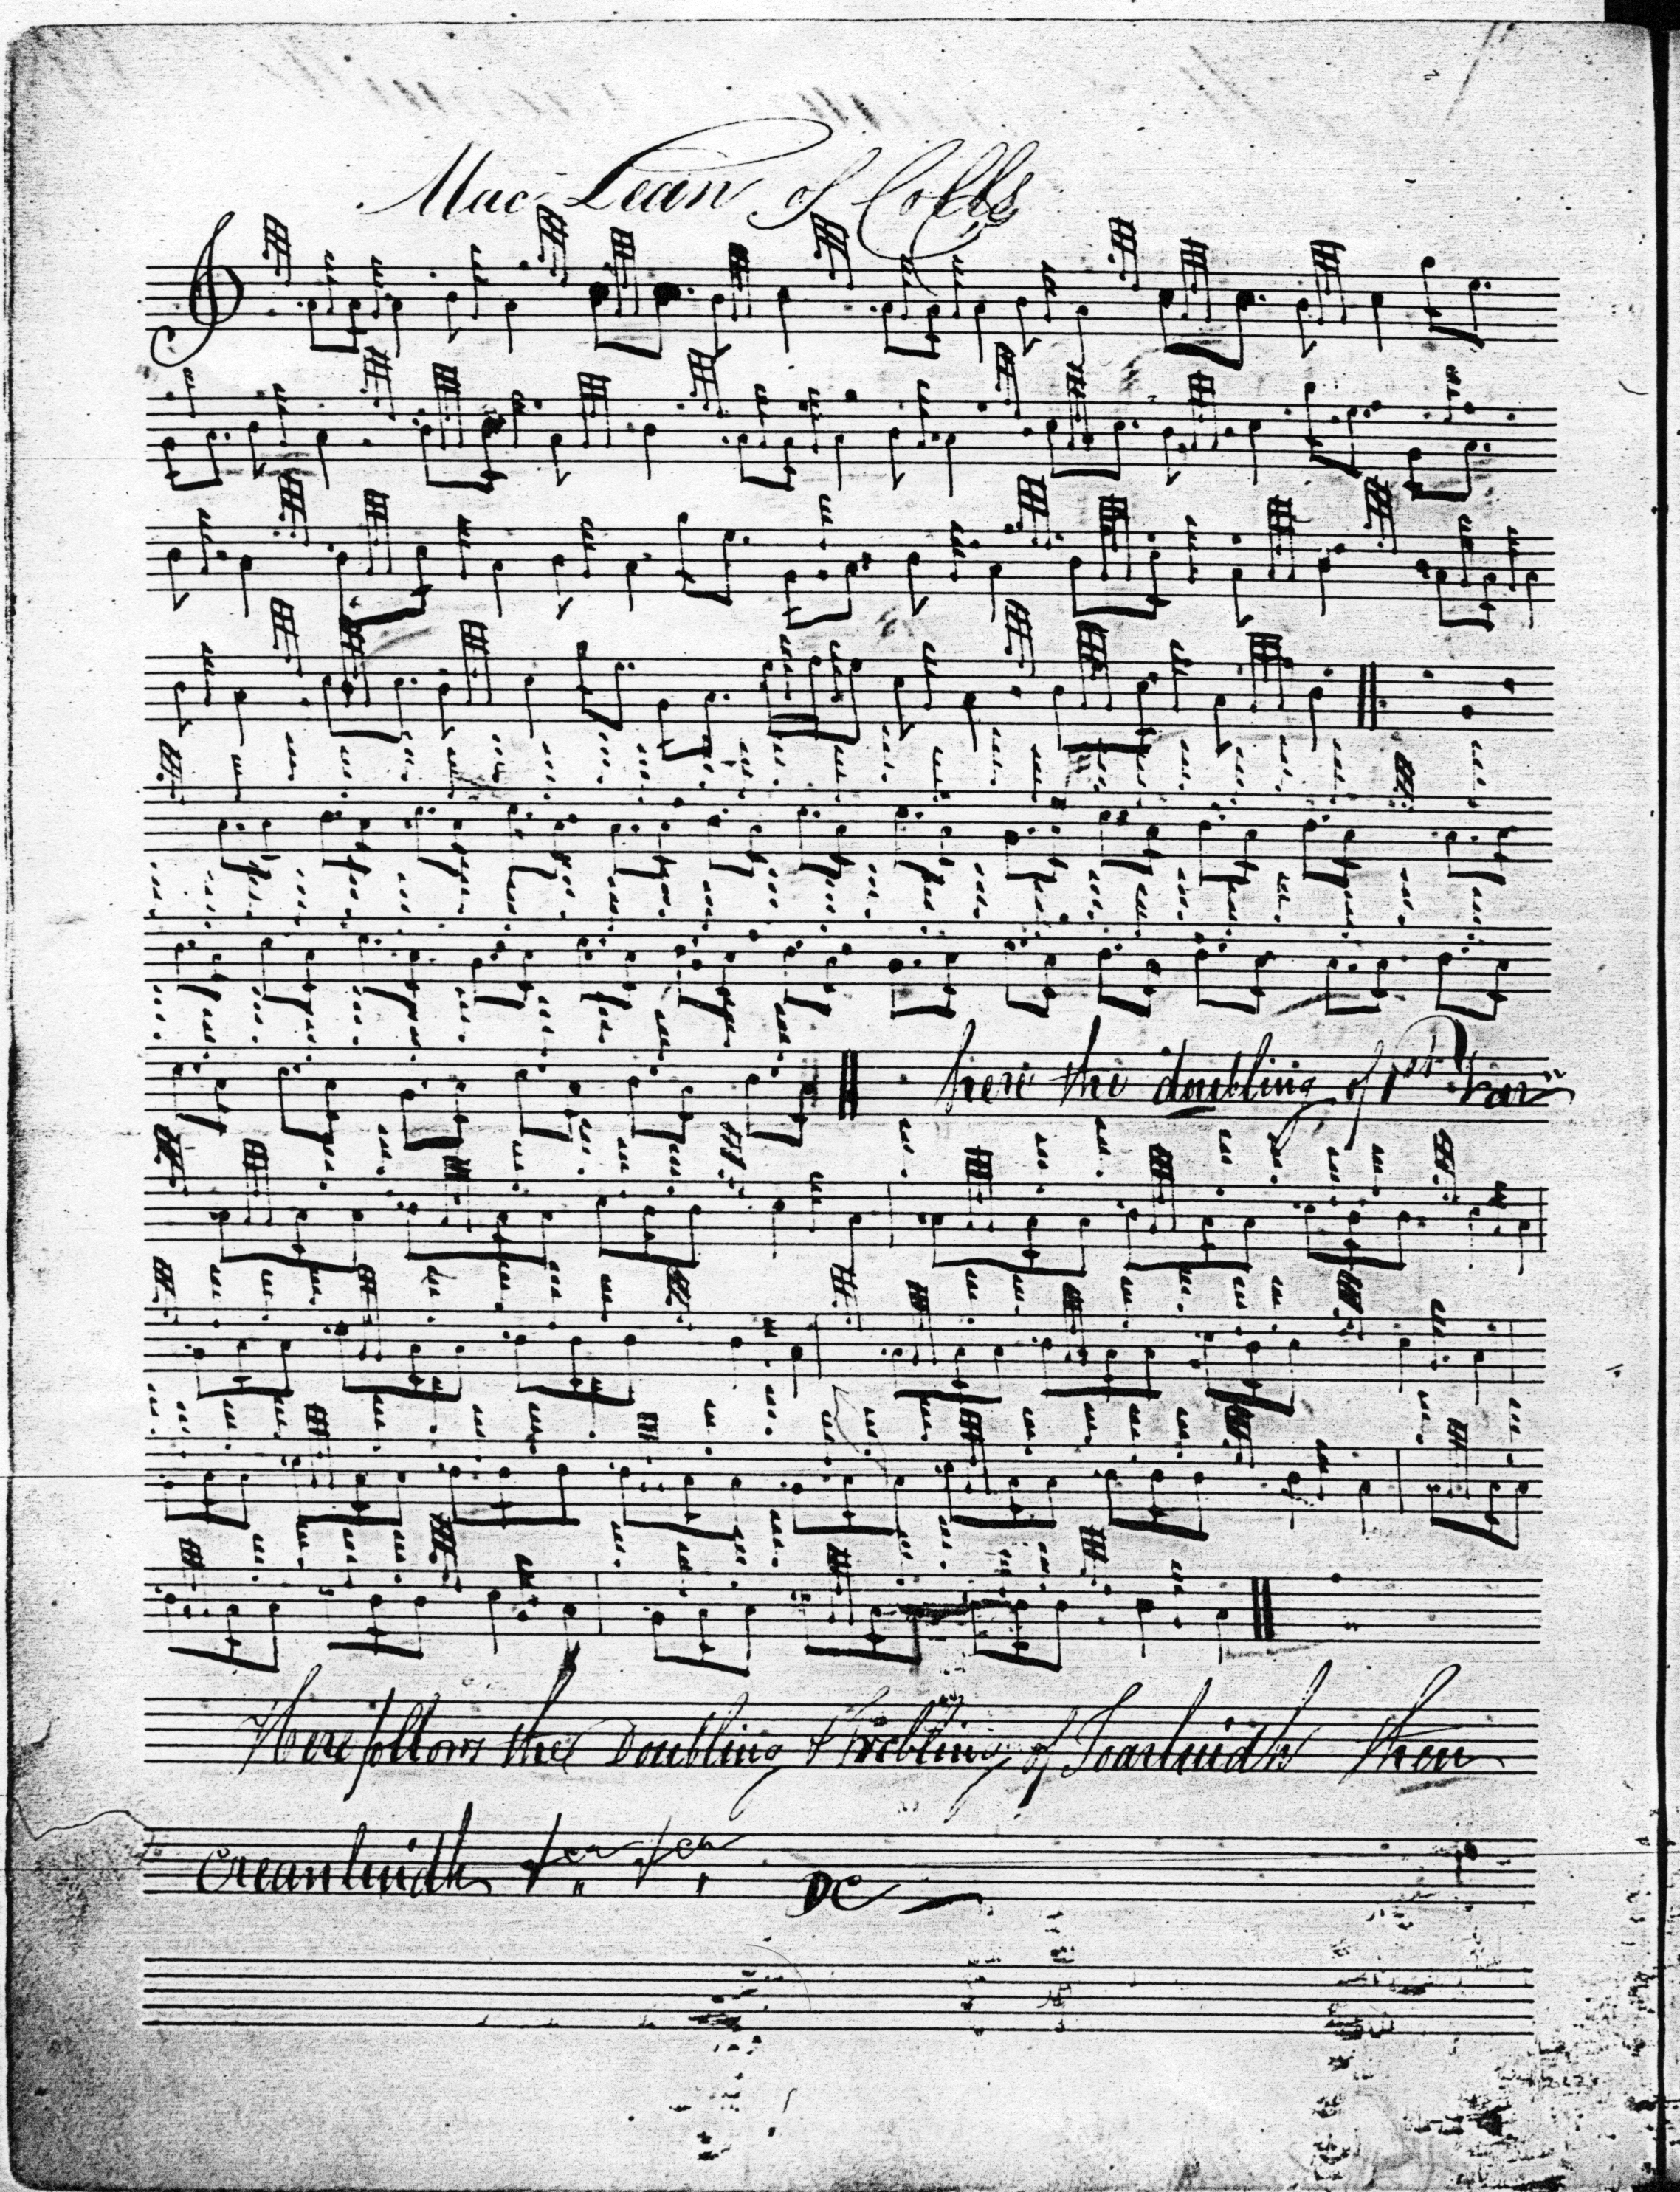 Mac Lean of Colls
here the doubling of 1st Var
Here follows the Doubling & Trebling of Toarluidh then
creanluidh
DC